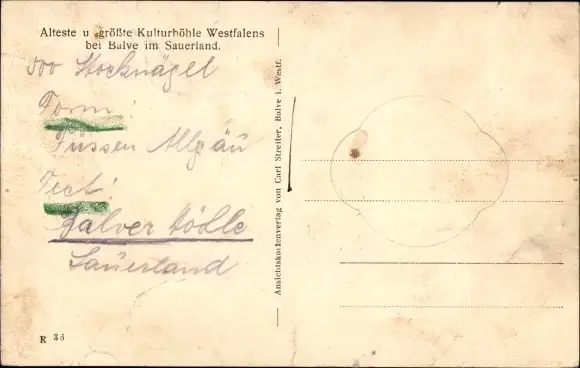 Älteste u. größte Kulturhöhle Westfalens
bei Balve im Sauerland.
500 Stocknägel
Form:
Füssen Allgäu
Text:
Balver Höhle
Sauerland
R 36
Ansichtskartenverlag von Carl Streiter, Balve i. Westf.